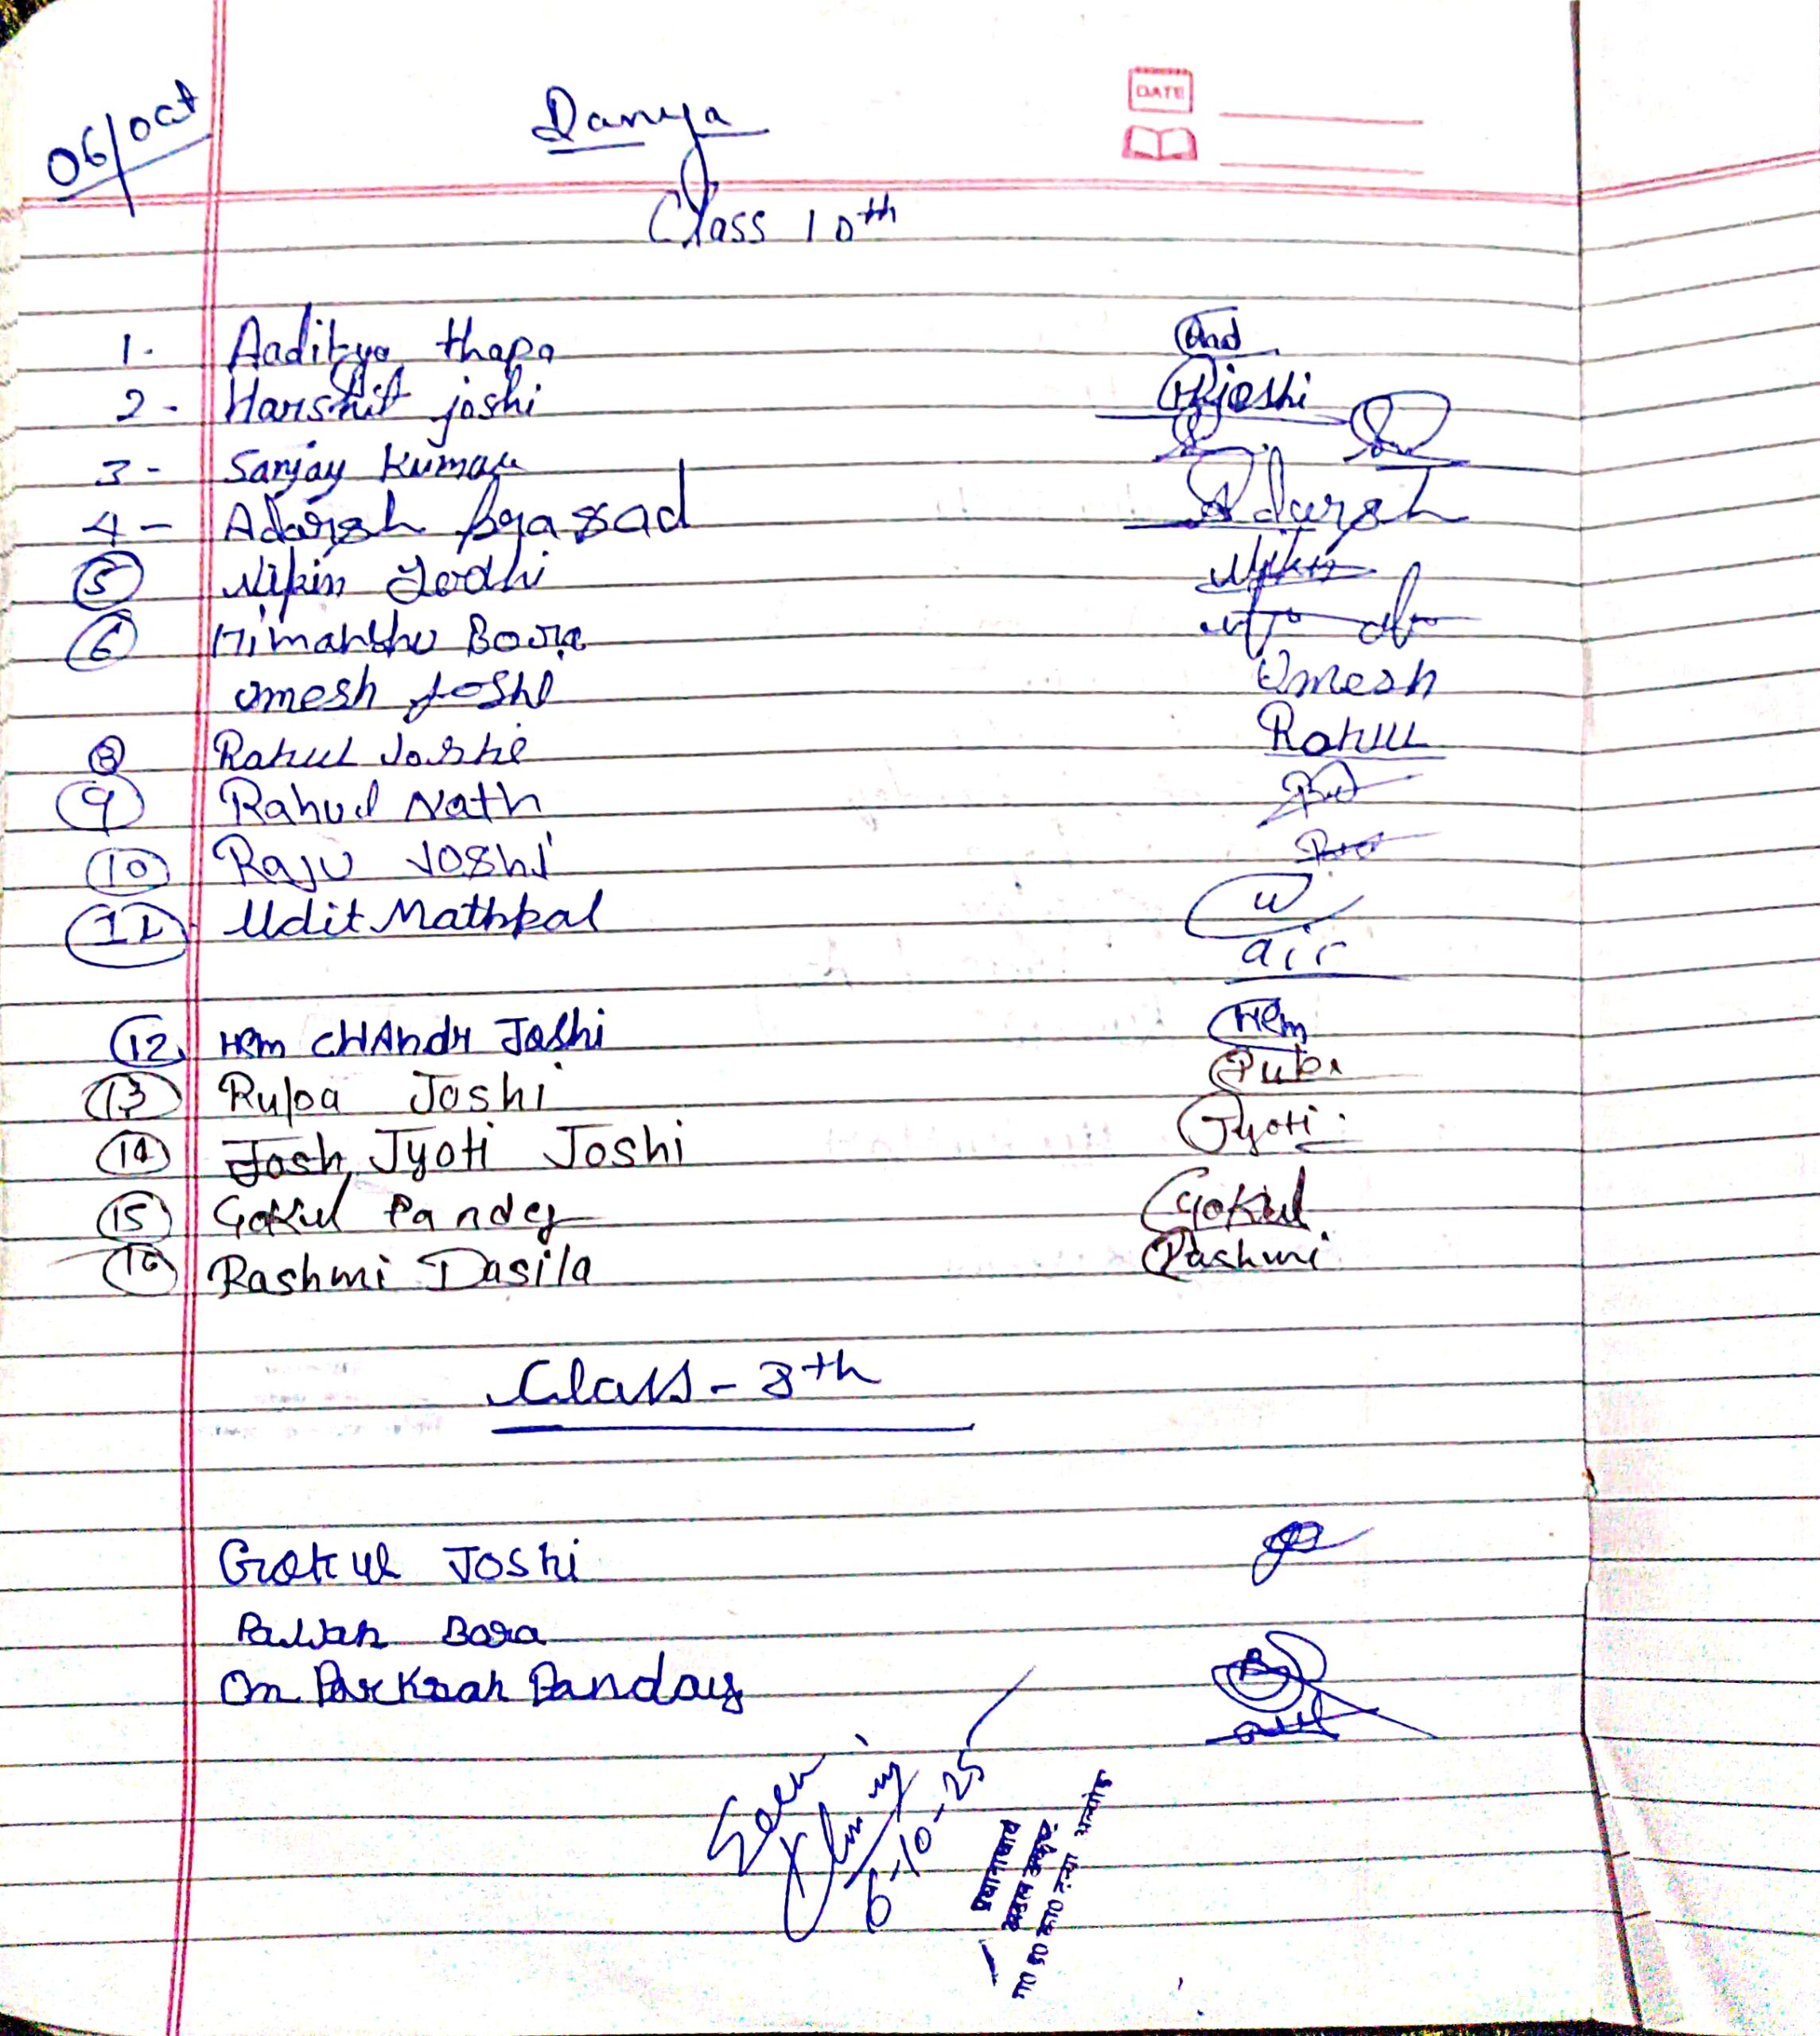 06/oct
Danya
DATE
Class 10th
1- Aaditya thapa
2- Harshit joshi Hjoshi
3- Sanjay Kumar
4- Adarsh prasad Adarsh
5 Nipin Jordhi
6 Himanshu Bora
Omesh Joshi Omesh
8 Rahul Joshi Rahul
9 Rahul Nath
10 Raju Joshi
11 Udit Mathpal W
air
12 Hem CHAndr Joshi Hem
13 Rupa Joshi
14 Josh Jyoti Joshi Jyoti
15 Gokul Pandey Gokul
16 Rashmi Dasila Rashmi
Class - 8th
Gokul Joshi
Pawan Bora
Om Parkash Panday
Seen
6-10-25
प्रधानाचार्य